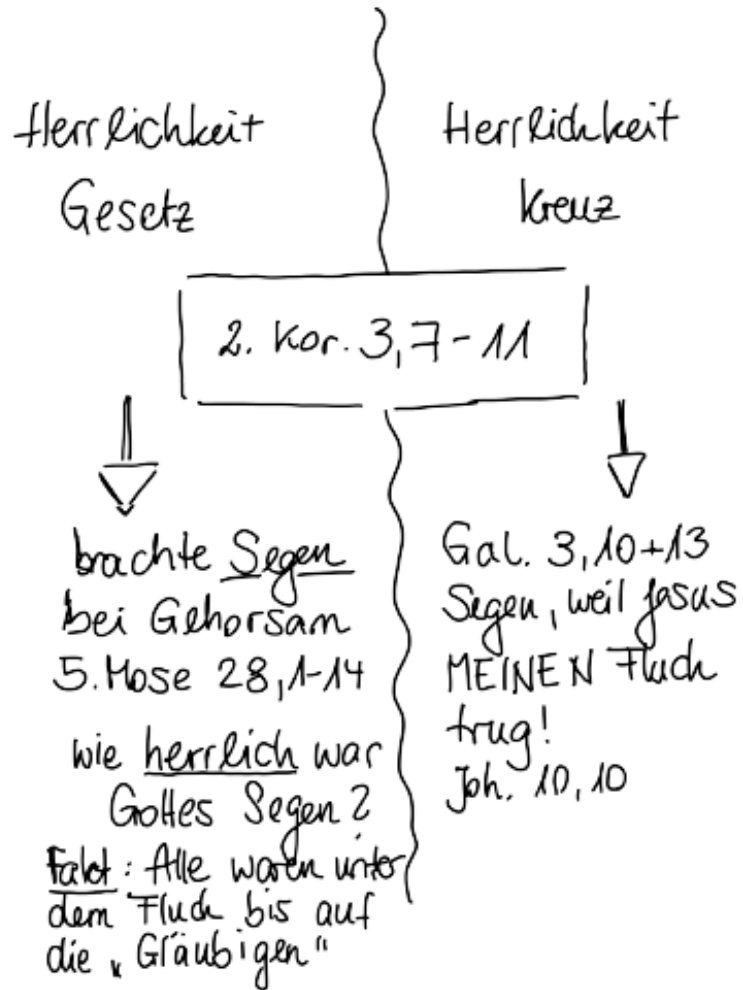 Herrlichkeit
Gesetz
Herrlichkeit
Kreuz
2. Kor. 3,7-11
brachte Segen
bei Gehorsam
5. Mose 28,1-14
wie herrlich war
Gottes Segen?
Fakt: Alle waren unter
dem Fluch bis auf
die „Gläubigen"
Gal. 3,10+13
Segen, weil Jesus
MEINEN Fluch
trug!
Joh. 10,10